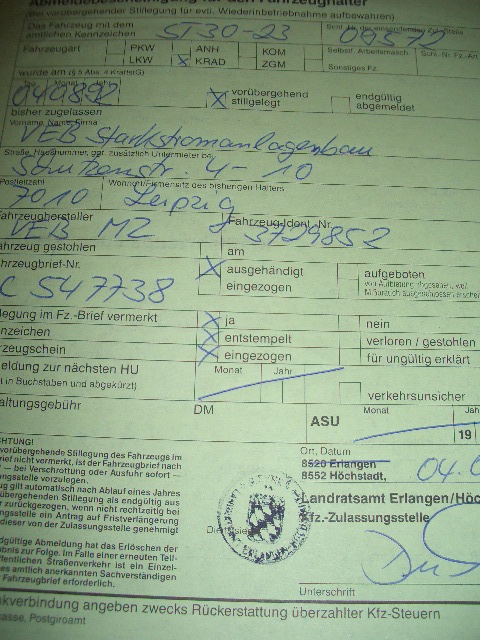 Abmeldebescheinigung für den Fahrzeughalter
(Bei vorübergehender Stillegung für evtl. Wiederinbetriebnahme aufbewahren)
Das Fahrzeug mit dem
amtlichen Kennzeichen ST30-23
Fahrzeugart PKW ANH KOM Selbstf. Arbeitsmasch. Schl. Nr. Fz.-Art
LKW X KRAD ZGM Sonstiges Fz.
wurde am (§ 5 Abs. 4 KraftStG)
040892 X vorübergehend stillgelegt endgültig abgemeldet
bisher zugelassen
Vorname, Name, Firma
VEB Starkstromanlagenbau
Straße, Hausnummer, ggf. zusätzlich Untermieter bei
4-10
Postleitzahl Wohnort/Firmensitz des bisherigen Halters
7010 Leipzig
Fahrzeughersteller Fahrzeug-Ident.-Nr.
VEB MZ 3729852
ahrzeug gestohlen am
hrzeugbrief-Nr. X ausgehändigt aufgeboten
C 547738 eingezogen
legung im Fz.-Brief vermerkt X ja nein
nnzeichen X entstempelt verloren / gestohlen
rzeugschein X eingezogen für ungültig erklärt
eldung zur nächsten HU Monat Jahr
in Buchstaben und abgekürzt) verkehrsunsicher
altungsgebühr DM
ASU Monat Jah
19
CHTUNG!
vorübergehende Stillegung des Fahrzeugs im
rief nicht vermerkt, ist der Fahrzeugbrief nach
— bei Verschrottung oder Ausfuhr sofort —
ngsstelle vorzulegen.
g gilt automatisch nach Ablauf eines Jahres
übergehenden Stillegung als endgültig aus
r zurückgezogen, wenn nicht rechtzeitig bei
ngsstelle ein Antrag auf Fristverlängerung
dieser von der Zulassungsstelle genehmigt
Ort, Datum
8520 Erlangen
8552 Höchstadt, 04.
Landratsamt Erlangen/Höc
Kfz.-Zulassungsstelle
dgültige Abmeldung hat das Erlöschen der
bnis zur Folge. Im Falle einer erneuten Teil-
fentlichen Straßenverkehr ist ein Einzel-
es amtlich anerkannten Sachverständigen
Fahrzeugbrief erforderlich.
Unterschrift
nkverbindung angeben zwecks Rückerstattung überzahlter Kfz-Steuern
casse, Postgiroamt